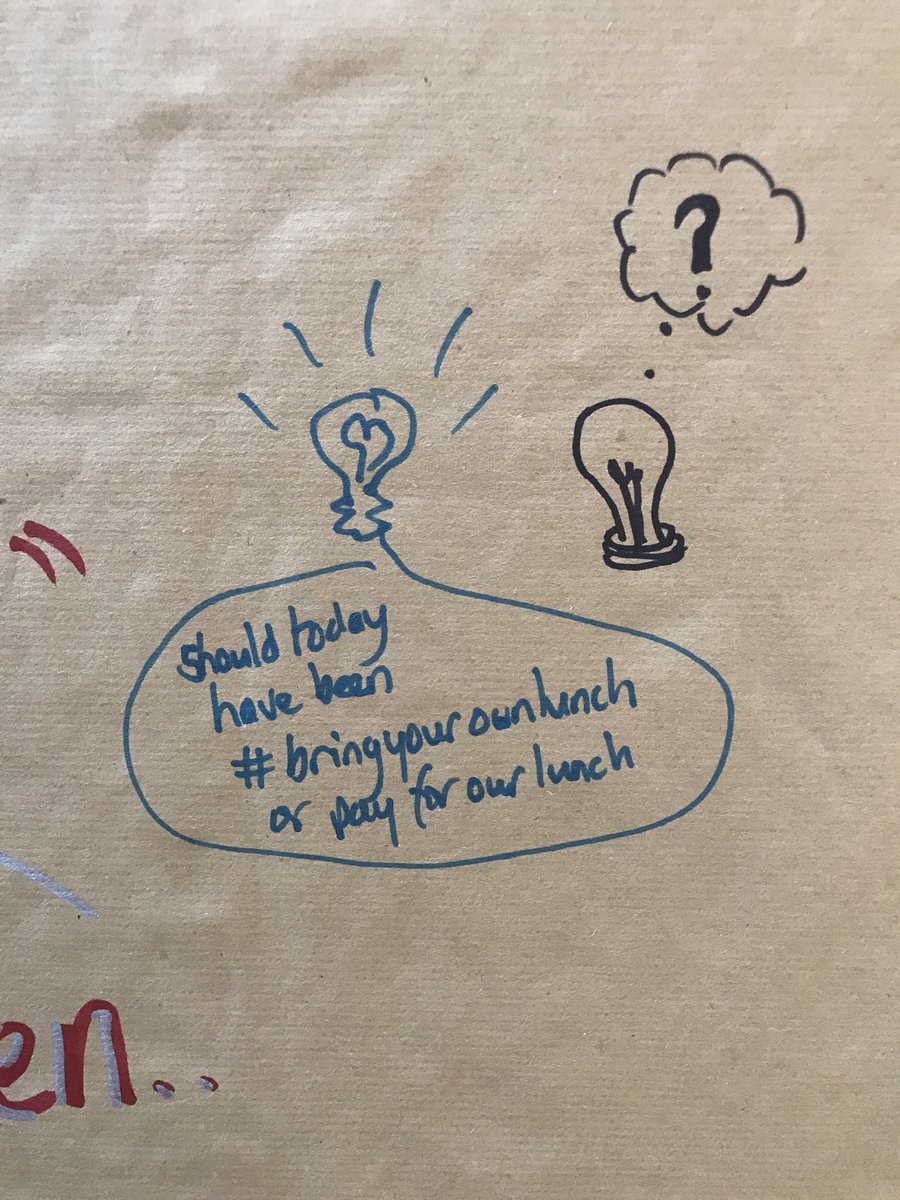 ?
should today
have been
#bringyourownlunch
or pay for our lunch
en..